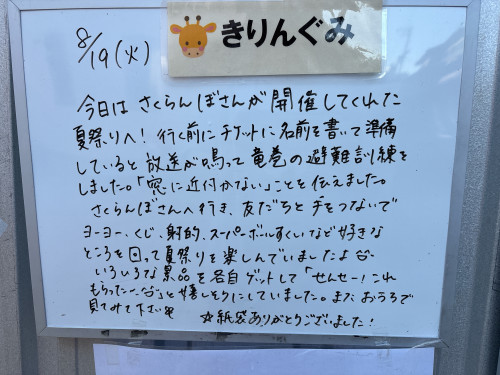 8/19(火)
きりんぐみ
今日は さくらんぼさんが 開催してくれた
夏祭りへ! 行く前にチケットに名前を書いて準備
していると 放送が鳴って 竜巻の避難訓練を
しました。「窓に近付かない」ことを伝えました。
さくらんぼさんへ行き、友だちと手をつないで
ヨーヨー、くじ、射的、スーパーボールすくいなど好きな
ところを回って夏祭りを楽しんでいましたよ
いろいろな景品を各自ゲットして「せんせー!これ
もらったー」と嬉しそうにしていました。またおうちで
見てみて下さい
☆紙袋ありがとうございました!